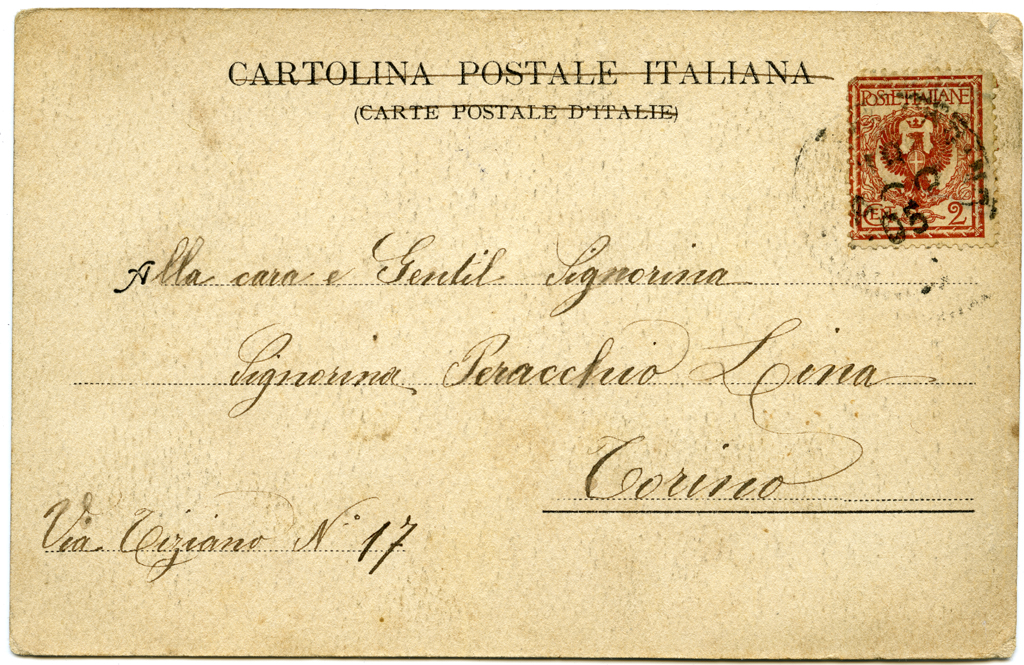 CARTOLINA POSTALE ITALIANA
(CARTE POSTALE D'ITALIE)
POSTE ITALIANE
CENT. 2
05
Alla cara e Gentil Signorina
Signorina Peracchio Lina
Torino
Via Tiziano N° 17